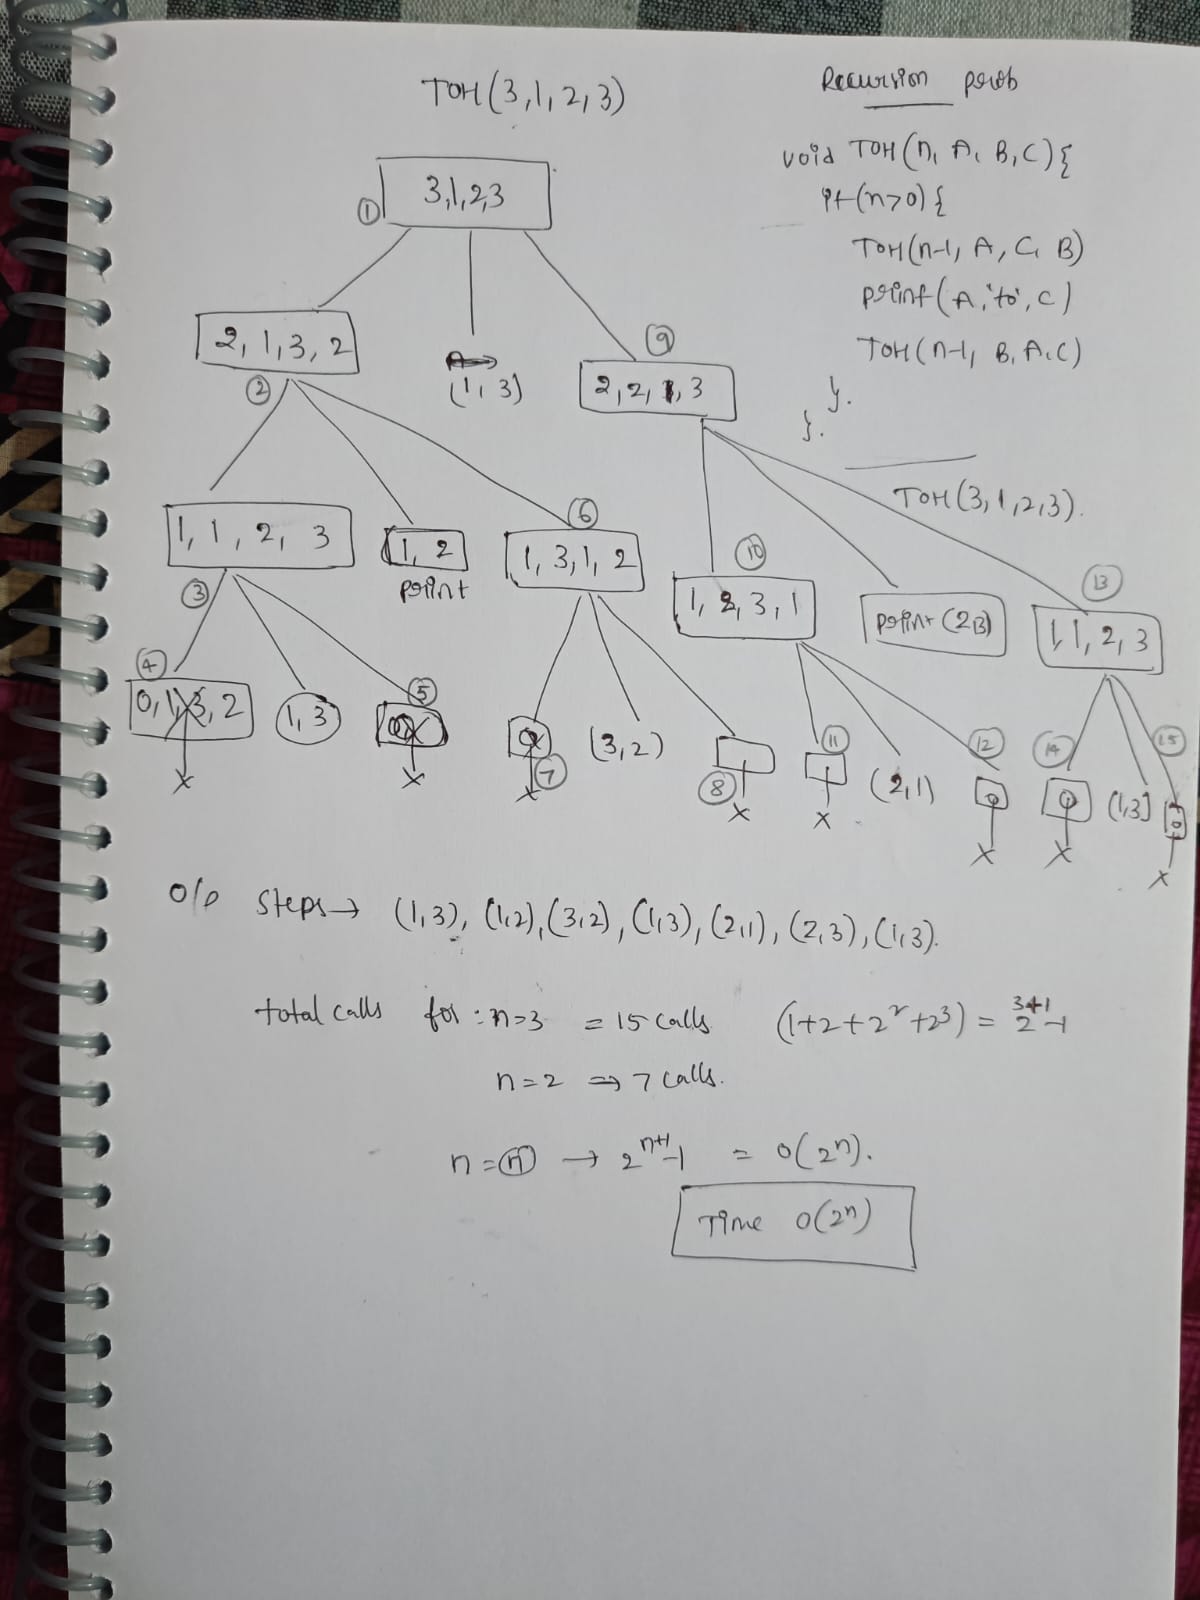 TOH(3,1,2,3)
Recursion prob
void TOH(n, A, B, C){
if(n>0){
TOH(n-1, A, C, B)
printf(A,'to', C)
TOH(n-1, B, A, C)
}.
}.
TOH(3,1,2,3).
① 3,1,2,3
② 2, 1, 3, 2
(1, 3)
⑨ 2, 2, 1, 3
③ 1, 1, 2, 3
1, 2
print
⑥ 1, 3, 1, 2
⑩ 1, 2, 3, 1
print (2,3)
⑬ 1, 1, 2, 3
④ 0, 1, 3, 2
x
1, 3
⑤
x
⑦
x
(3, 2)
⑧
x
⑪
x
(2,1)
⑫ 0
x
⑭ 0
x
(1,3]
⑮ 0
x
o/p steps → (1,3), (1,2), (3,2), (1,3), (2,1), (2,3), (1,3).
total calls for : n=3 = 15 calls (1+2+2²+2³) = 2³⁺¹-1
n=2 ⇒ 7 calls.
n=ⓝ → 2ⁿ⁺¹-1 = O(2ⁿ).
Time O(2ⁿ)